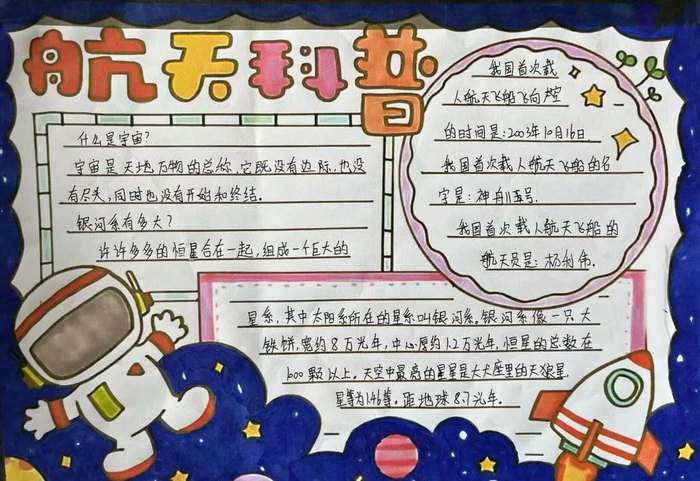 航天科普
什么是宇宙？
宇宙是天地万物的总称，它既没有边际，也没
有尽头，同时也没有开始和终结。
银河系有多大？
许许多多的恒星合在一起，组成一个巨大的
我国首次载
人航天飞船飞向太空
的时间是：2003年10月16日
我国首次载人航天飞船的名
字是：神舟五号．
我国首次载人航天飞船的
航天员是：杨利伟．
星系，其中太阳系所在的星系叫银河系，银河系像一只大
铁饼，宽约8万光年，中心厚约1.2万光年，恒星的总数在
1000颗以上，天空中最亮的星星是大犬座里的天狼星
星等为1.46等，距地球8.7光年．